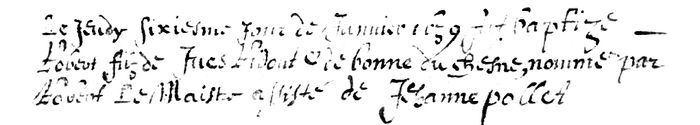 Le Jeudy sixiesme Jour de Janvier 1639 fut baptize
Robert filz de Jues Ridout & de bonne du chesne, nommé par
Robert Le Maistre assisté de Jehanne pollet